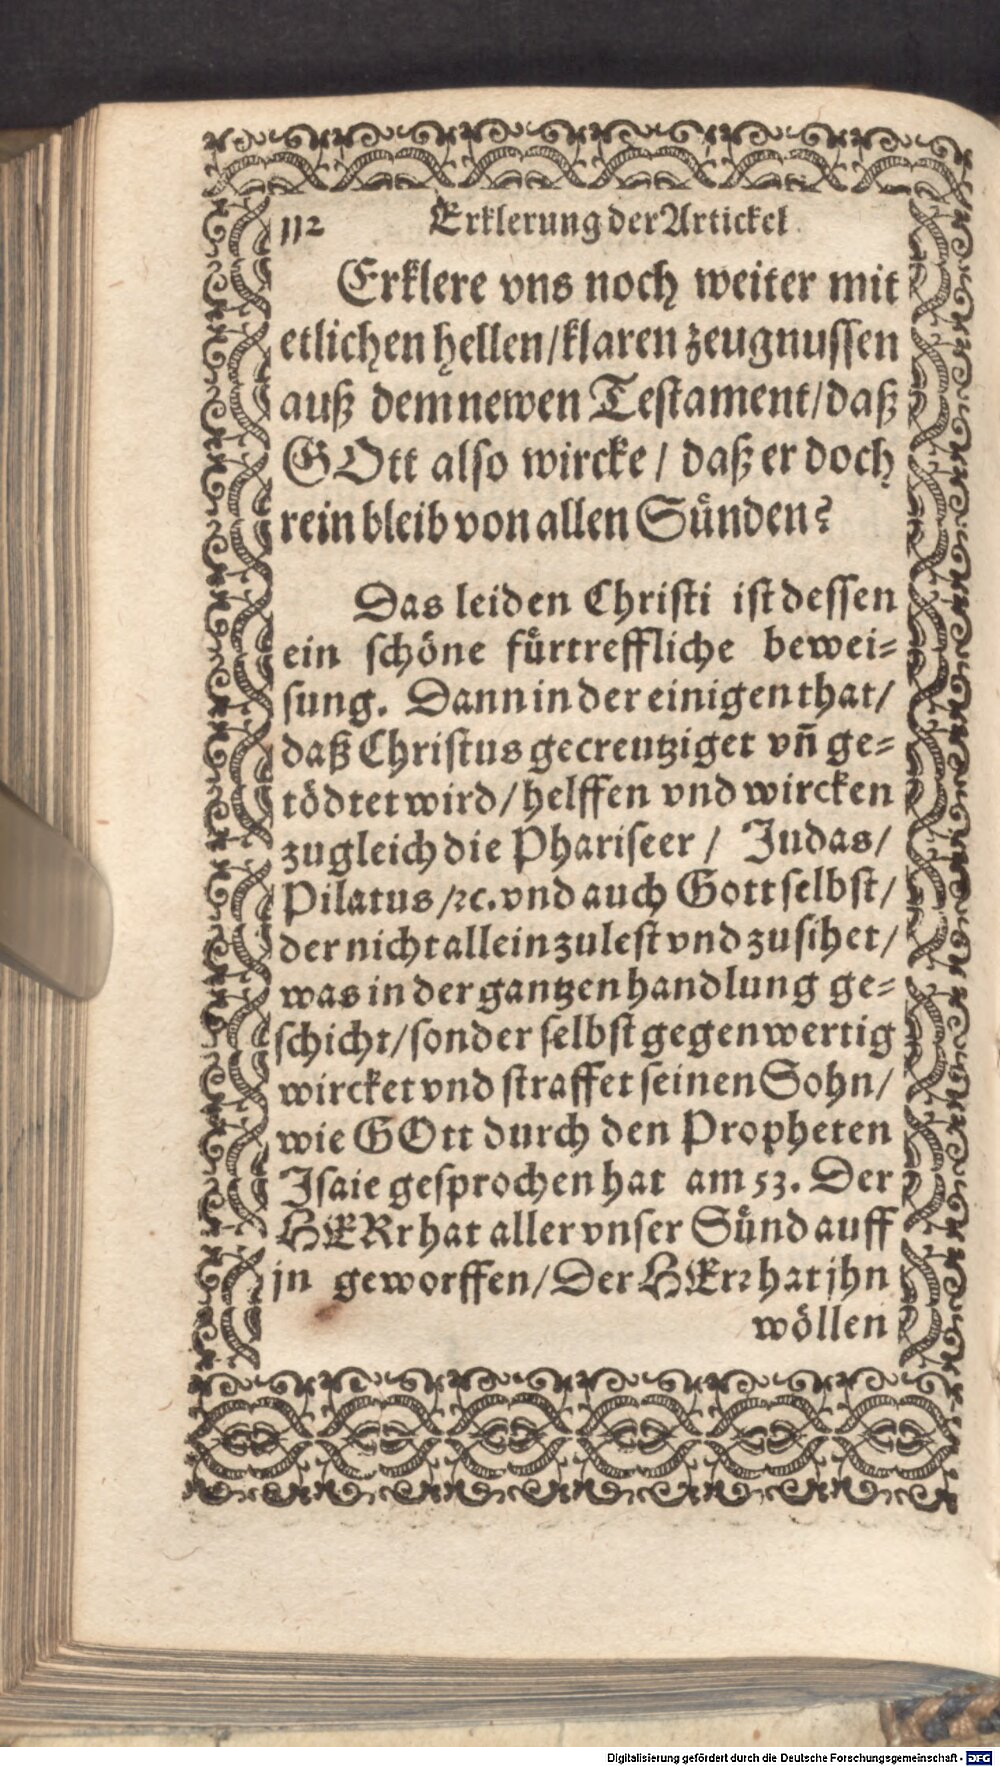 112 Erklerung der Artickel
Erklere vns noch weiter mit
etlichen hellen/klaren zeugnussen
auß dem newen Testament/daß
GOtt also wircke / daß er doch
rein bleib von allen Sünden?
Das leiden Christi ist dessen
ein schöne fürtreffliche bewei-
sung. Dann in der einigen that/
daß Christus gecreutziget vñ ge-
tödtet wird/helffen vnd wircken
zugleich die Phariseer / Judas/
Pilatus/ꝛc. vnd auch Gott selbst/
der nicht allein zulest vnd zusihet/
was in der gantzen handlung ge-
schicht/sonder selbst gegenwertig
wircket vnd straffet seinen Sohn/
wie GOtt durch den Propheten
Isaie gesprochen hat am 53. Der
HERr hat aller vnser Sünd auff
jn geworffen/Der HErꝛ hat jhn
wöllen
Digitalisierung gefördert durch die Deutsche Forschungsgemeinschaft - DFG